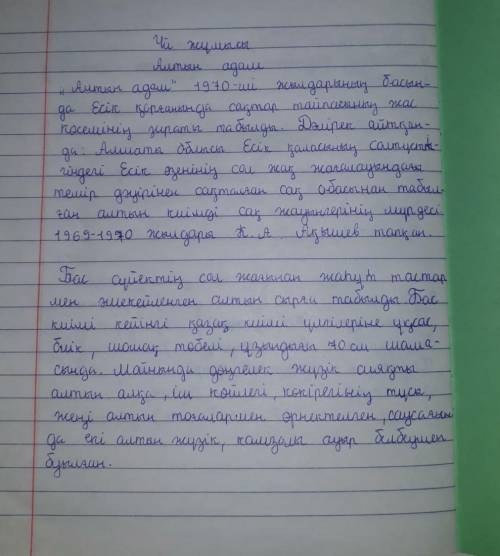 Үй жұмысы
Алтын адам
„Алтын адам" 1970-ші жылдарының басын-
да Есік қорғанында сақтар тайпасының жас
көсемінің зираты табылды. Дәлірек айтқан-
да: Алматы облысы Есік қаласының солтүсті-
гіндегі Есік өзенінің сол жақ жағалауындағы
темір дәуірінен сақталған сақ обасынан табыл-
ған алтын киімді сақ жауынгерінің мүрдесі
1969-1970 жылдары К. А Ақышев тапқан.
Бас сүйектің сол жағынан жаһұт тастар
мен әшекейленген алтын сырға табылды. Бас
киімі кейінгі қазақ киімі үлгілеріне ұқсас,
биік, шошақ төбелі, ұзындығы 70 см шама-
сында. Мойнында дөңгелек жүзік сияқты
алтын алқа, іш көйлегі, көкірегінің тұсы,
жеңі алтын тоғалармен өрнектелген, саусағын
да екі алтын жүзік, камзолы ауыр белбеумен
буылған.